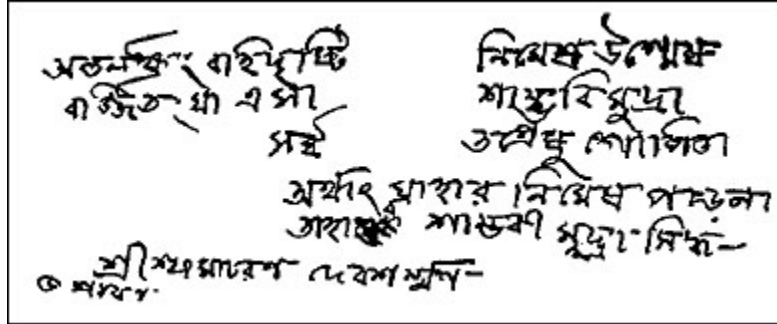 অন্তর্লক্ষ্যং বহির্দৃষ্টি নিমেষ উন্মেষ
বর্জ্জিত এষা সা শাম্ভবি মুদ্রা
সর্ব্ব তন্ত্রেষু গোপিতা
অর্থাৎ যাহার নিমেষ পড়েনা
তাহার শাম্ভবী মুদ্রা সিদ্ধ—
শ্রীশ্যামাচরণ দেবশর্ম্মণ—